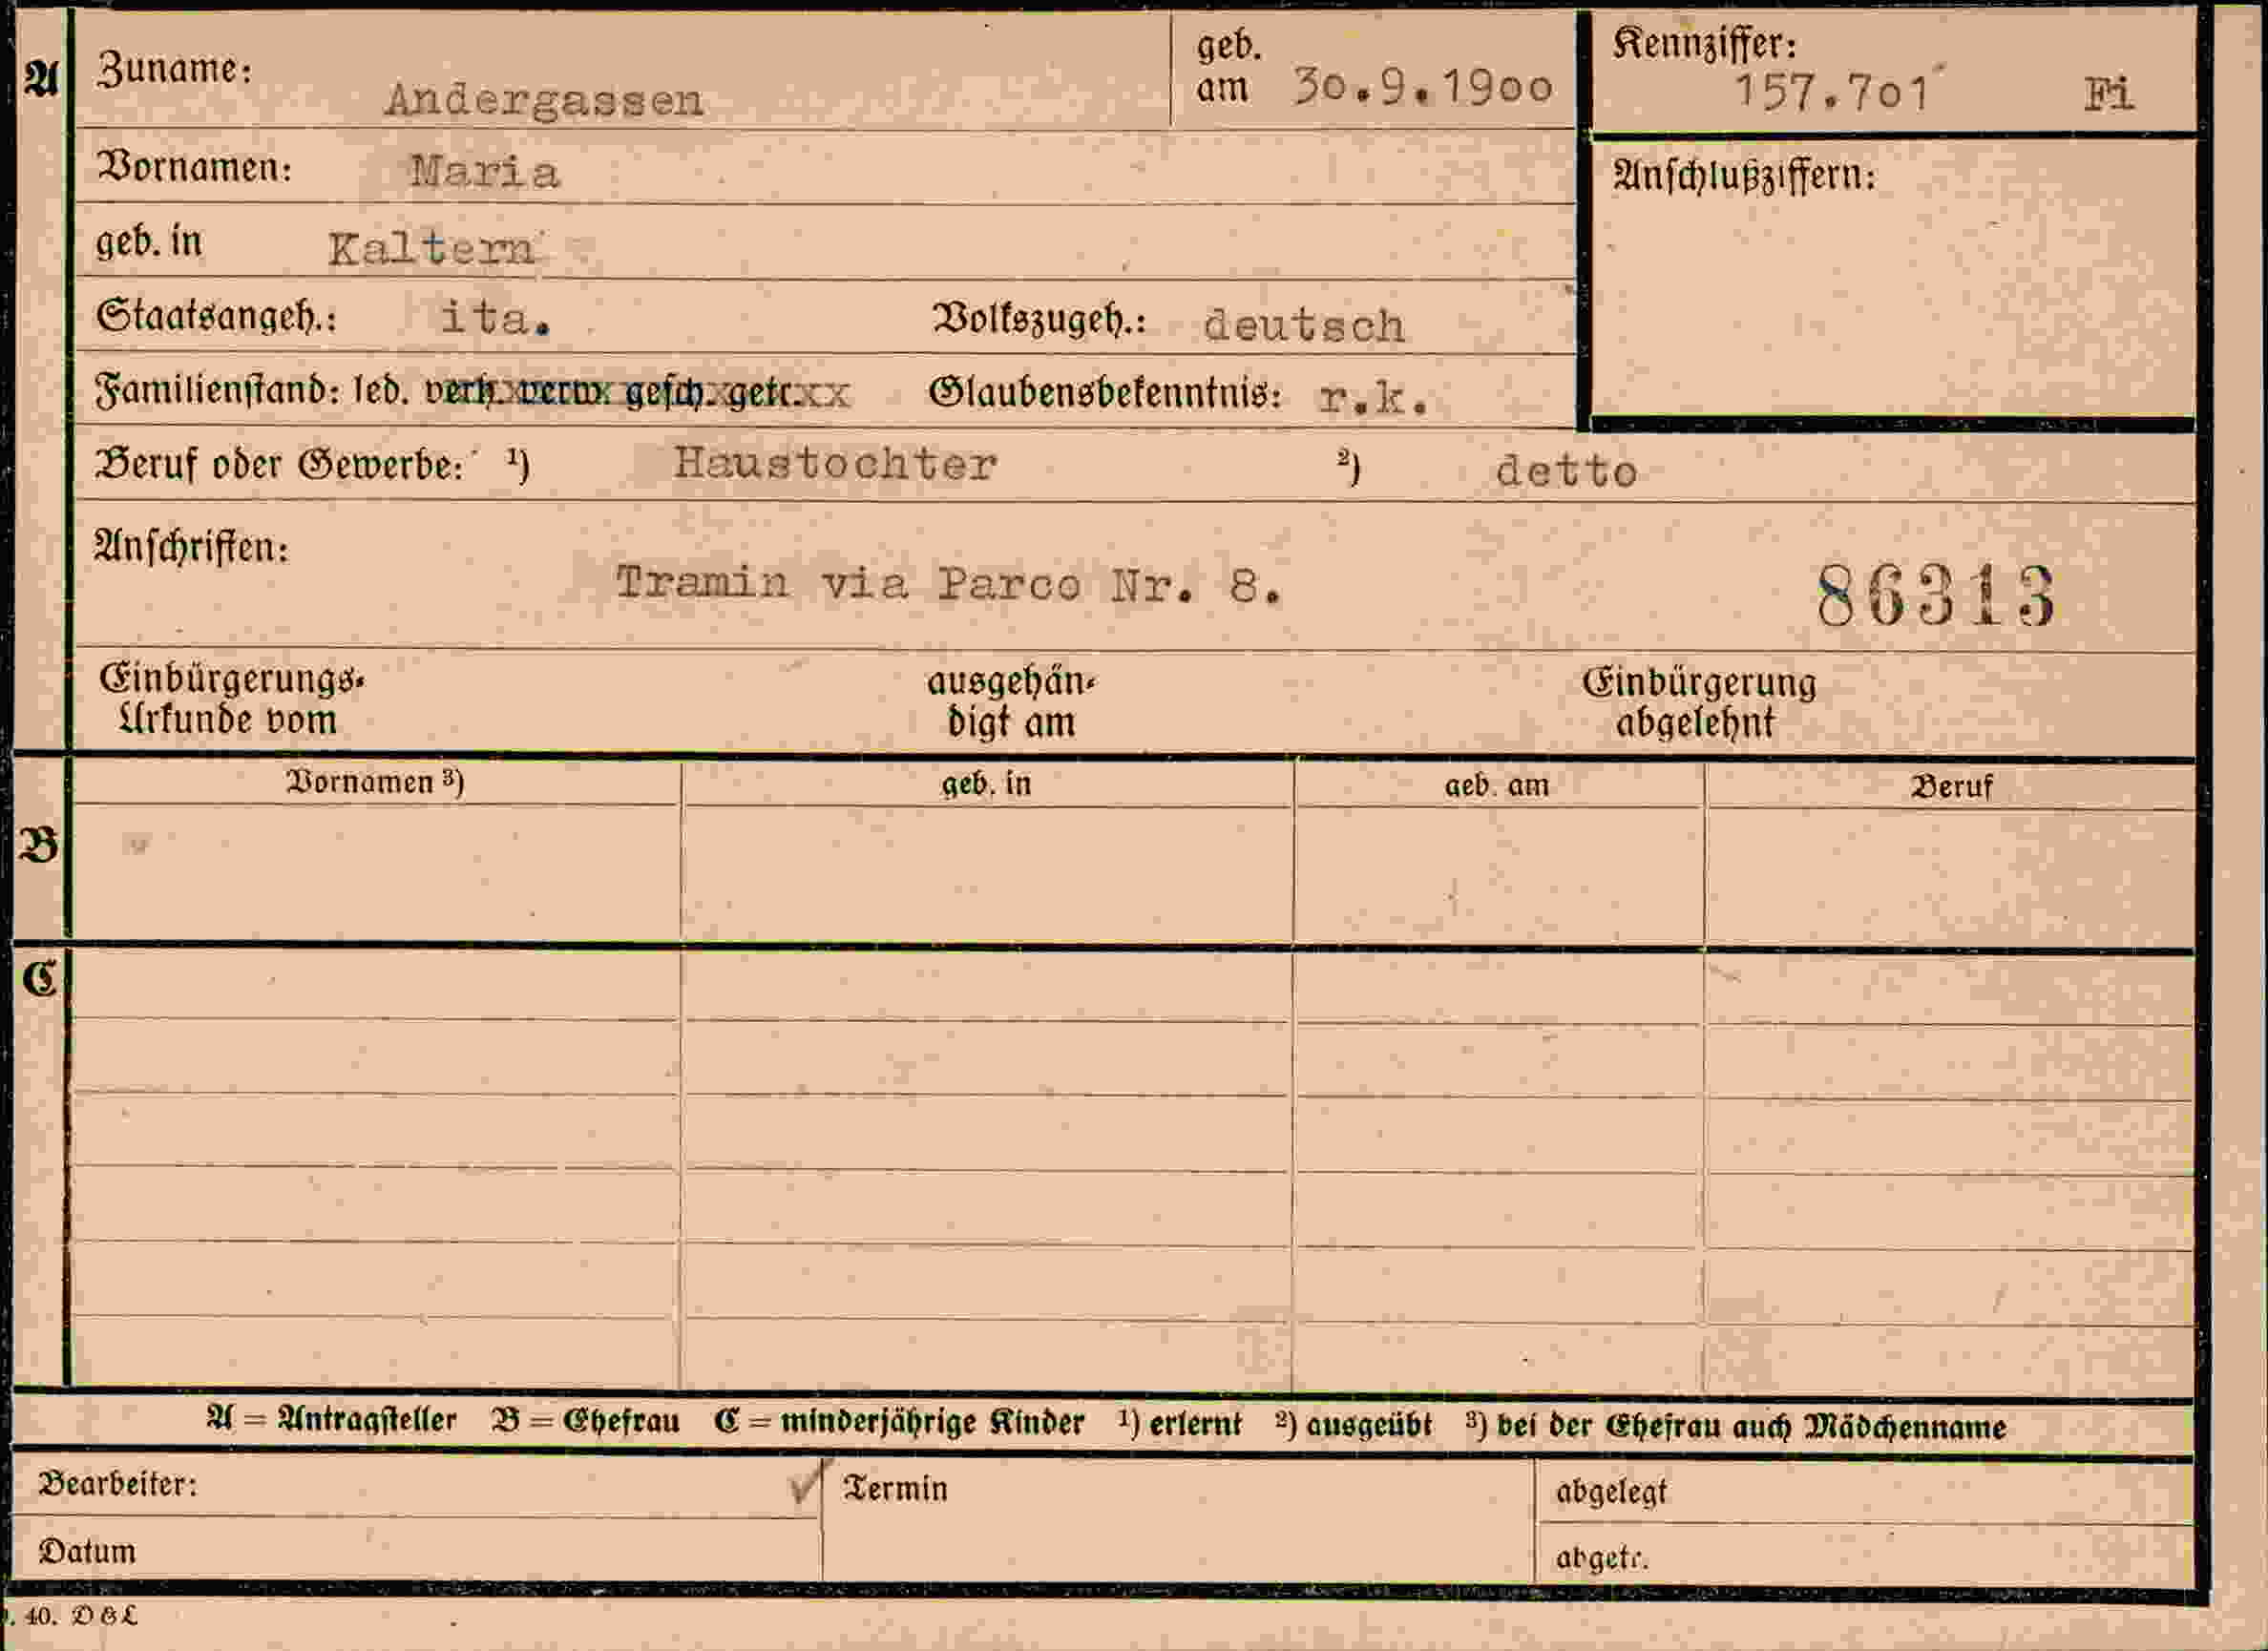 A Zuname: Andergassen geb. am 30.9.1900 Kennziffer: 157.701 Fi
Vornamen: Maria Anschlußziffern:
geb. in Kaltern
Staatsangeh.: ita. Volkszugeh.: deutsch
Familienstand: led. verh. verw. gesch. getr. Glaubensbekenntnis: r.k.
Beruf oder Gewerbe: ¹) Haustochter ²) detto
Anschriften: Tramin via Parco Nr. 8. 86313
Einbürgerungs- ausgehän- Einbürgerung
Urkunde vom digt am abgelehnt
Vornamen ³) geb. in geb. am Beruf
B
C
A = Antragsteller B = Ehefrau C = minderjährige Kinder ¹) erlernt ²) ausgeübt ³) bei der Ehefrau auch Mädchenname
Bearbeiter: Termin abgelegt
Datum abgetr.
40. D G L